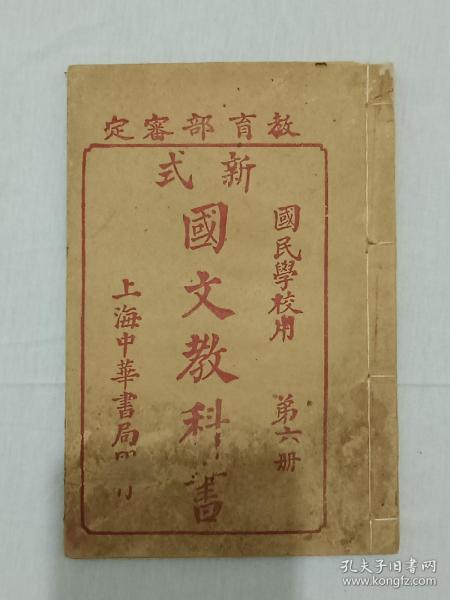 教育部審定
國民學校用 第六册
新式
國文教科書
上海中華書局印
孔夫子旧书网
www.kongfz.com